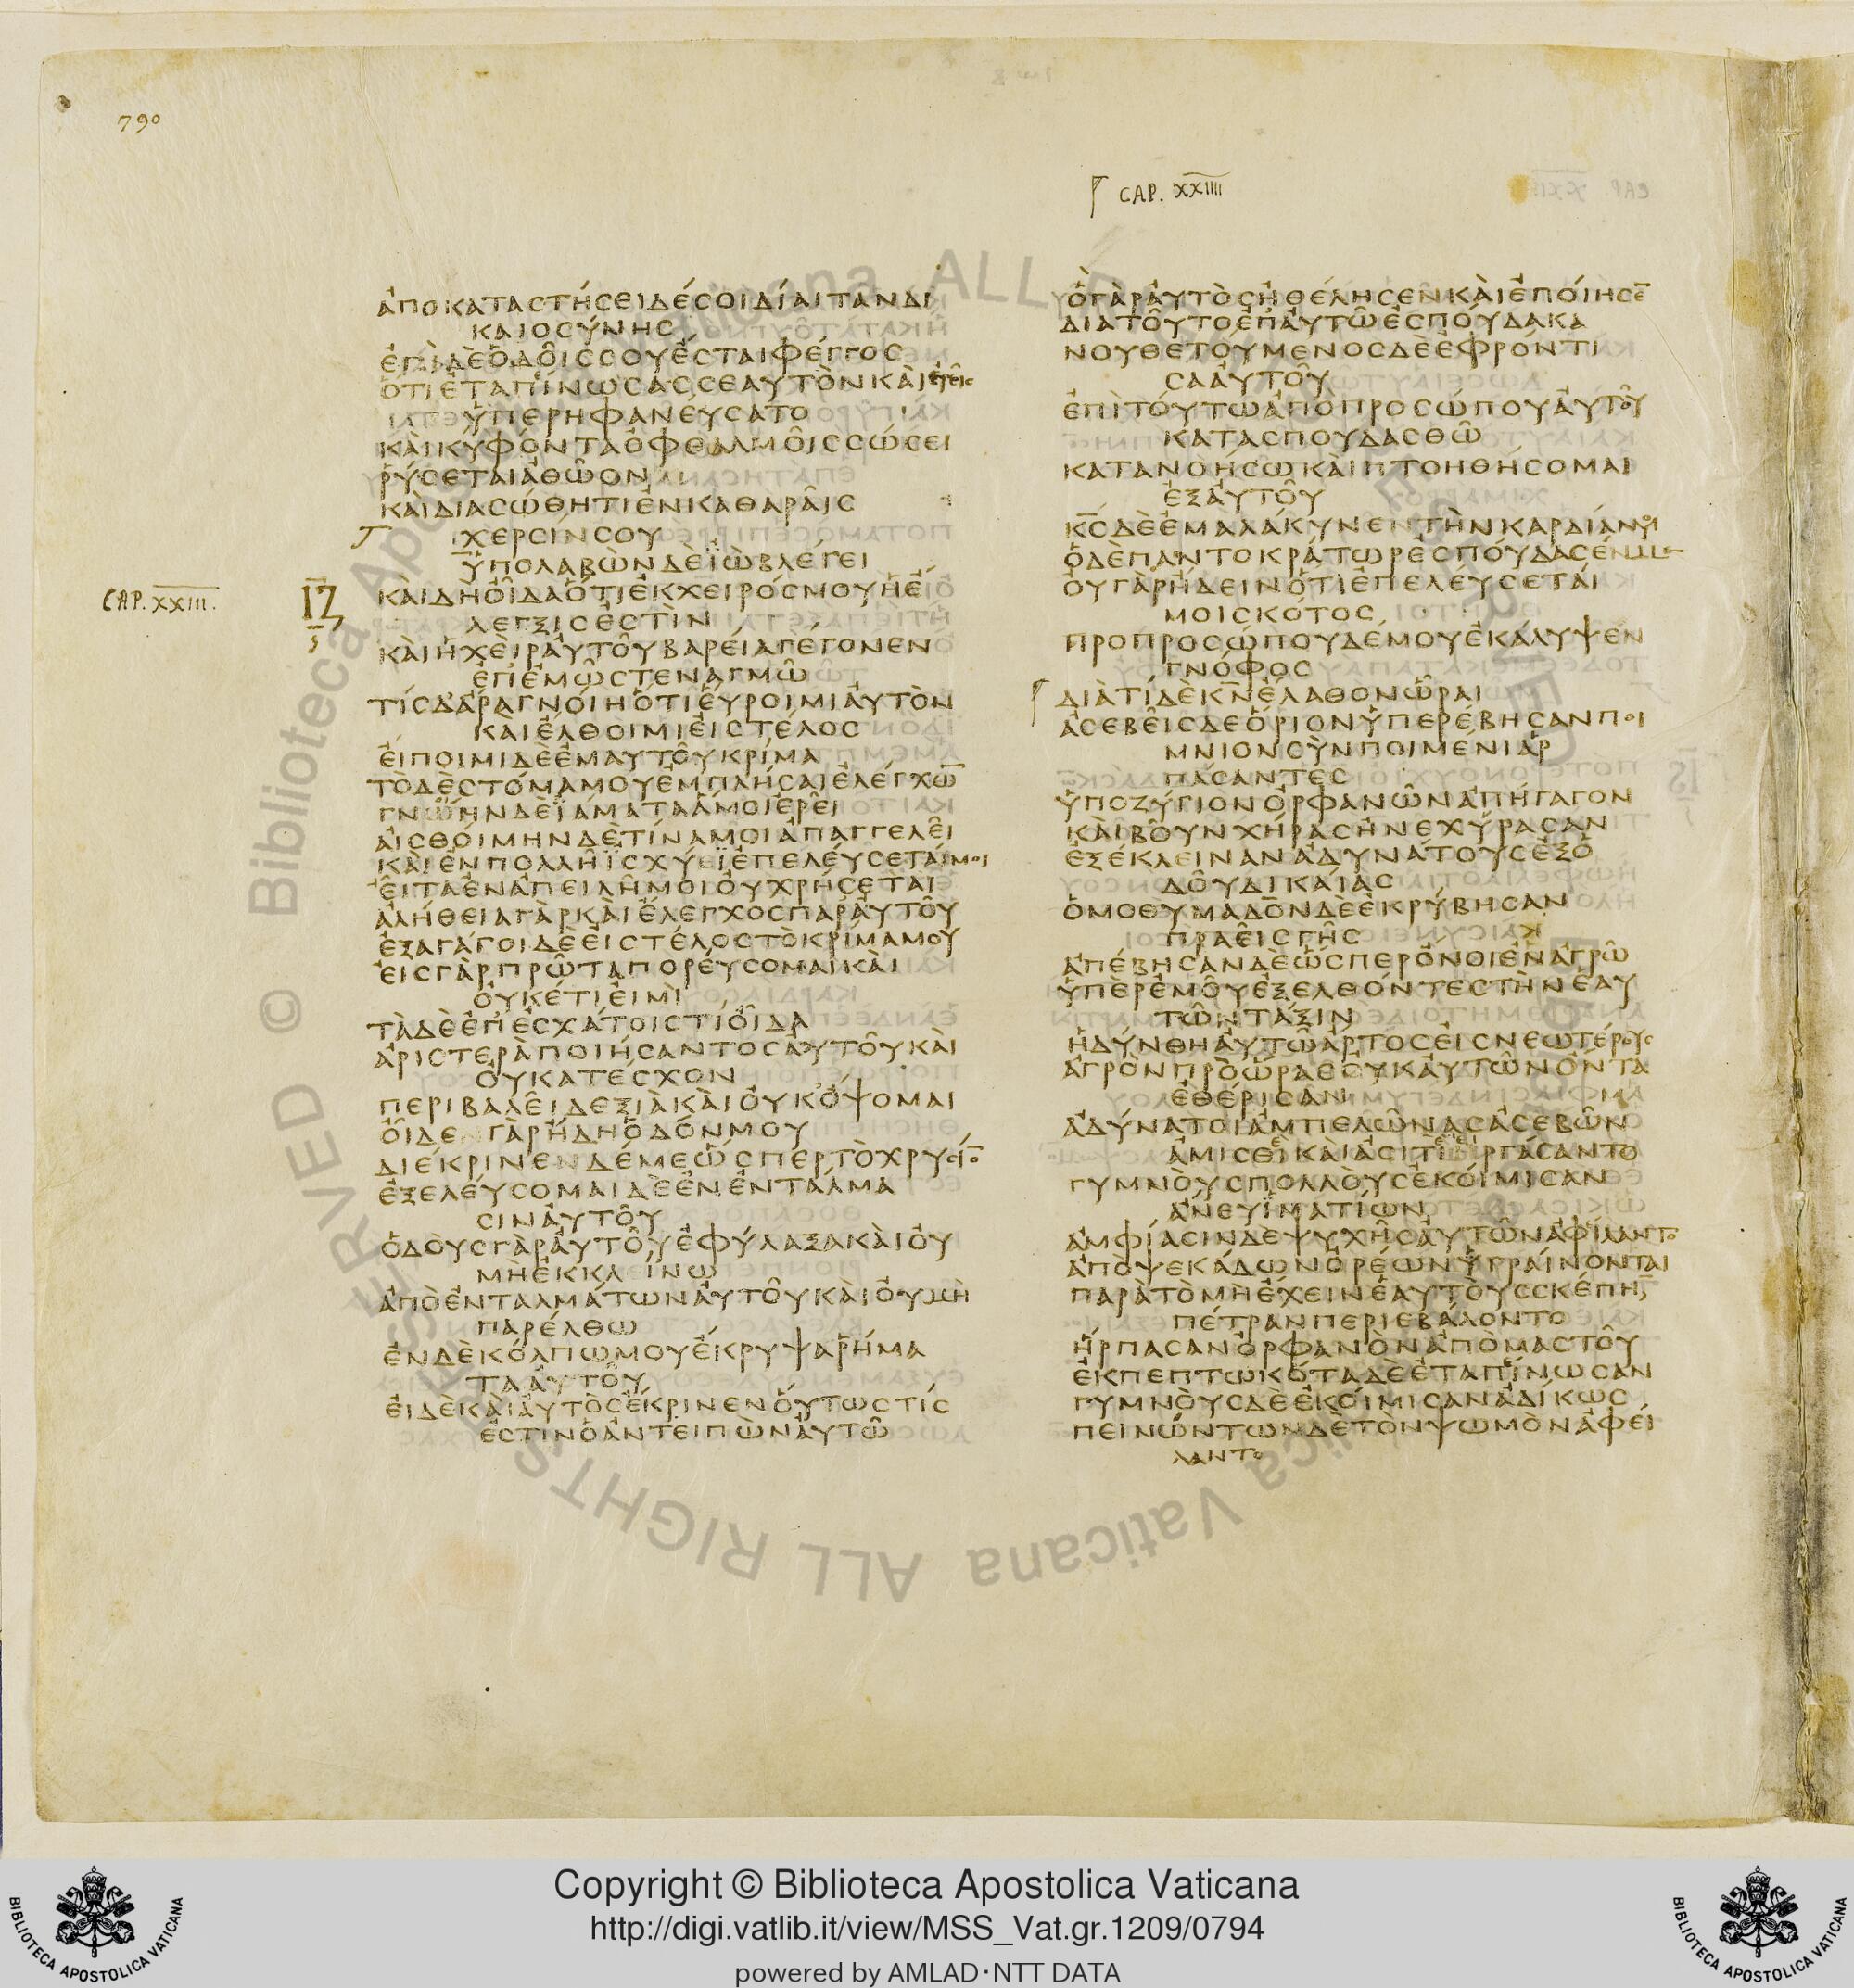 790
CAP. XXIIII
ἀποκαταστήσει δέ σοι δίαιταν δι
καιοσύνης
ἐπὶ δὲ ὁδοῖς σου ἔσται φέγγος
ὅτι ἐταπίνωσας σεαυτὸν καὶ ἐρεῖς
ὑπερηφανεύσατο
καὶ κύφοντα ὀφθαλμοῖς σώσει
ῥύσεται ἀθῷον
καὶ διασώθητι ἐν καθαραῖς
χερσίν σου
ὑπολαβὼν δὲ ϊὼβ λέγει
CAP. XXIII.
ΙΖ
καὶ δὴ οἶδα ὅτι ἐκ χειρός μου ἡ ἔ
λεγξις ἐστὶν
καὶ ἡ χεὶρ αὐτοῦ βαρεῖα γέγονεν
ἐπ ἐμῷ στεναγμῷ
τίς δ ἄρα γνοίη ὅτι εὕροιμι αὐτὸν
καὶ ἔλθοιμι εἰς τέλος
εἴποιμι δὲ ἐμαυτοῦ κρίμα
τὸ δὲ στόμα μου ἐμπλήσαι ἐλέγχω̅
γνῴην δὲ ϊάματα ἅ μοι ἐρεῖ
αἰσθοίμην δὲ τίνα μοι ἀπαγγελεῖ
καὶ ἐν πολλῇ ϊσχύει ἐπελεύσεταί μοι
εἶτα ἐν ἀπειλῇ μοι οὐ χρήσεται
ἀλήθεια γὰρ καὶ ἔλεγχος παρ αὐτοῦ
ἐξαγάγοι δὲ εἰς τέλος τὸ κρίμα μου
εἰς γὰρ πρῶτα πορεύσομαι καὶ
οὐκέτι εἰμὶ
τὰ δὲ ἐπ ἐσχάτοις τί οἶδα
ἀριστερὰ ποιήσαντος αὐτοῦ καὶ
οὐ κατέσχον
περιβαλεῖ δεξιὰ καὶ οὐκ ὄψομαι
οἶδε γὰρ ἤδη ὁδόν μου
διέκρινεν δέ με ὥσπερ τὸ χρυσίο̅
ἐξελεύσομαι δὲ ἐν ἐντάλμα
σιν αὐτοῦ
ὁδοὺς γὰρ αὐτοῦ ἐφύλαξα καὶ οὐ
μὴ ἐκκλείνω
ἀπὸ ἐνταλμάτων αὐτοῦ καὶ οὐ μὴ
παρέλθω
ἐν δὲ κόλπῳ μου ἔκρυψα ῥήμα
τα αὐτοῦ
εἰ δὲ καὶ αὐτὸς ἔκρινεν οὕτως τίς
ἐστιν ὁ ἀντειπὼν αὐτῷ
ὁ γὰρ αὐτὸς ἠθέλησεν καὶ ἐποίησε̅
διὰ τοῦτο ἐπ αὐτῷ ἐσπούδακα
νουθετούμενος δὲ ἐφρόντι
σα αὐτοῦ
ἐπὶ τούτῳ ἀπὸ προσώπου αὐτοῦ
κατασπουδασθῶ
κατανοήσω καὶ πτοηθήσομαι
ἐξ αὐτοῦ
κ̅ς̅ δὲ ἐμαλάκυνεν τὴν καρδίαν μου
ὁ δὲ παντοκράτωρ ἐσπούδασέν με
οὐ γὰρ ᾔδειν ὅτι ἐπελεύσεταί
μοι σκότος
πρὸ προσώπου δέ μου ἐκάλυψεν
γνόφος
διὰ τί δὲ κ̅ν̅ ἔλαθον ὧραι
ἀσεβεῖς δὲ ὅριον ὑπερέβησαν ποι
μνιον σὺν ποιμένι ἁρ
πάσαντες
ὑποζύγιον ὀρφανῶν ἀπήγαγον
καὶ βοῦν χήρας ἠνεχύρασαν
ἐξέκλειναν ἀδυνάτους ἐξ ὁ
δοῦ δικαίας
ὁμοθυμαδὸν δὲ ἐκρύβησαν
πραεῖς γῆς
ἀπέβησαν δὲ ὥσπερ ὄνοι ἐν ἀγρῷ
ὑπὲρ ἐμοῦ ἐξελθόντες τὴν ἑαυ
τῶν τάξιν
ἡδύνθη αὐτῷ ἄρτος εἰς νεωτέρους
ἀγρὸν πρὸ ὥρας οὐκ αὐτῶν ὄντα
ἐθέρισαν
ἀδύνατοι ἀμπελῶνας ἀσεβῶν
ἀμισθὶ καὶ ἀσιτὶ ἠργάσαντο
γυμνοὺς πολλοὺς ἐκοίμισαν
ἄνευ ϊματίων
ἀμφίασιν δὲ ψυχῆς αὐτῶν ἀφίλαντο
ἀπὸ ψεκάδων ὀρέων ὑγραίνονται
παρὰ τὸ μὴ ἔχειν ἑαυτοὺς σκέπη̅
πέτραν περιεβάλοντο
ἥρπασαν ὀρφανὸν ἀπὸ μαστοῦ
ἐκπεπτωκότα δὲ ἐταπίνωσαν
γυμνοὺς δὲ ἐκοίμισαν ἀδίκως
πεινώντων δὲ τὸν ψωμὸν ἀφεί
λαντο
© Biblioteca Apostolica Vaticana ALL RIGHTS RESERVED
Copyright © Biblioteca Apostolica Vaticana
http://digi.vatlib.it/view/MSS_Vat.gr.1209/0794
powered by AMLAD·NTT DATA
BIBLIOTECA APOSTOLICA VATICANA
BIBLIOTECA APOSTOLICA VATICANA